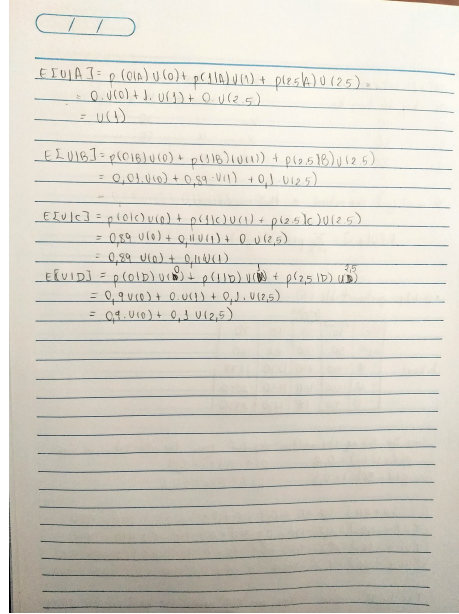 / /
E[U|A] = p(0|A) U(0) + p(1|A) U(1) + p(2.5|A) U(2.5) =
= 0. U(0) + 1. U(1) + 0. U(2.5)
= U(1)
E[U|B] = p(0|B) U(0) + p(1|B) (U(1)) + p(2.5|B) U(2.5)
= 0,01. U(0) + 0,89. U(1) + 0,1 U(2.5)
E[U|C] = p(0|C) U(0) + p(1|C) U(1) + p(2.5|C) U(2.5)
= 0,89 U(0) + 0,11 U(1) + 0. U(2,5)
= 0,89 U(0) + 0,11 U(1)
E[U|D] = p(0|D) U(0) + p(1|D) U(1) + p(2,5|D) U(2,5)
= 0,9 U(0) + 0. U(1) + 0,1. U(2,5)
= 0,9. U(0) + 0,1 U(2,5)